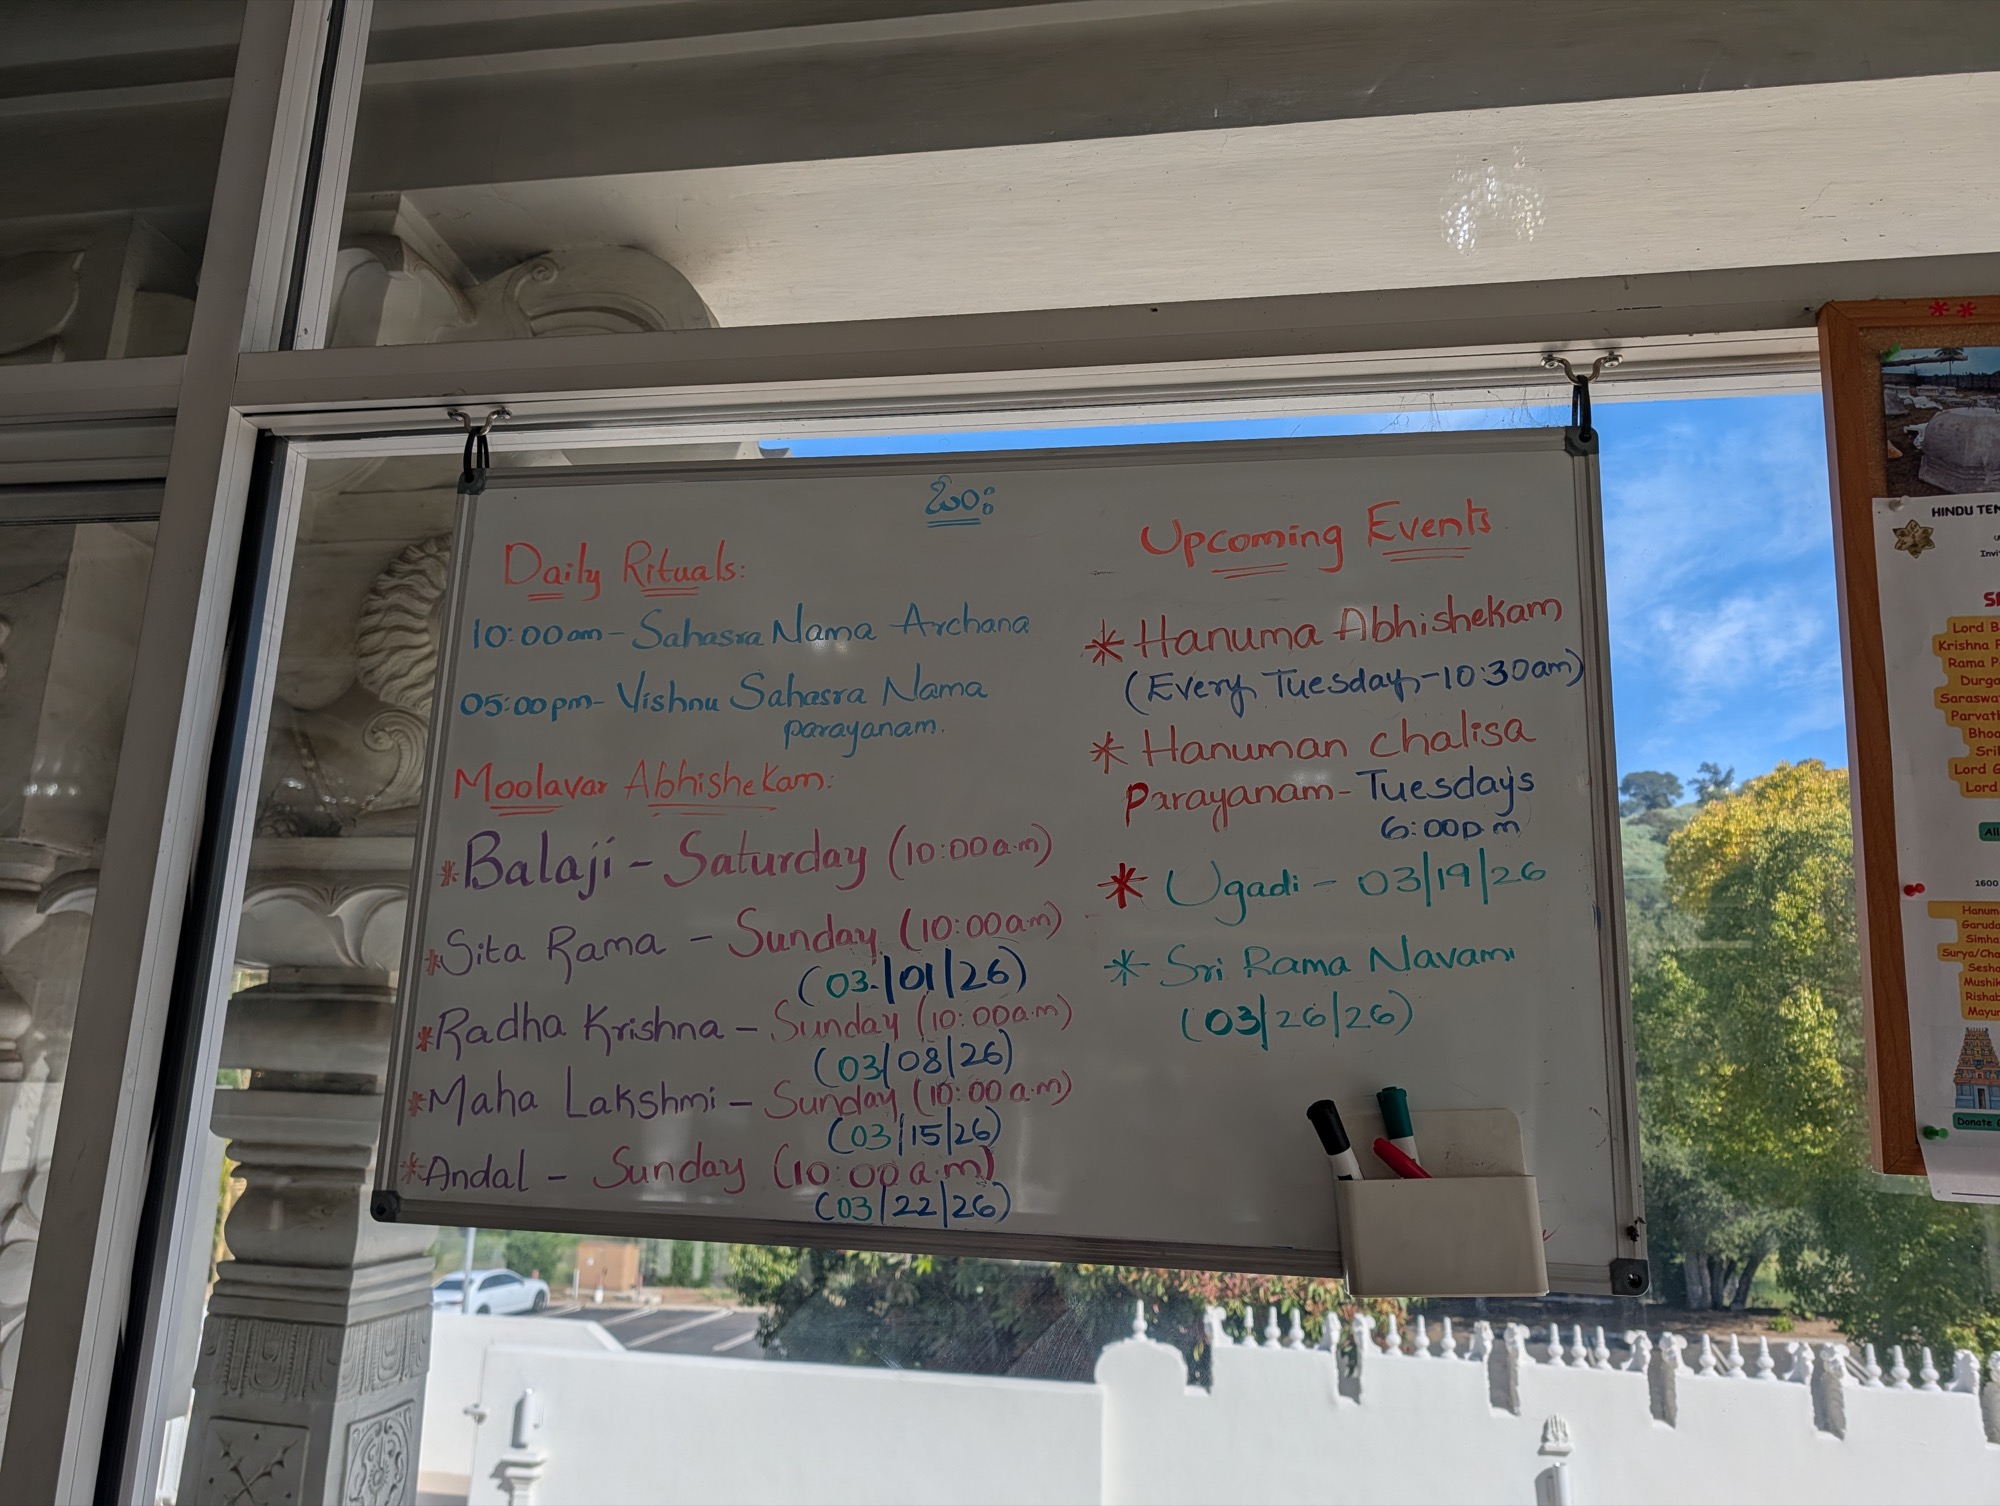 ఓం:
Daily Rituals:
10:00am - Sahasra Nama Archana
05:00pm - Vishnu Sahasra Nama
parayanam.
Moolavar Abhishekam:
*Balaji - Saturday (10:00a.m)
*Sita Rama - Sunday (10:00am)
(03/01/26)
*Radha Krishna - Sunday (10:00am)
(03/08/26)
*Maha Lakshmi - Sunday (10:00a.m)
(03/15/26)
*Andal - Sunday (10:00a.m)
(03/22/26)
Upcoming Events
* Hanuma Abhishekam
(Every Tuesday-10:30am)
* Hanuman chalisa
Parayanam - Tuesday's
6:00pm
* Ugadi - 03/19/26
* Sri Rama Navami
(03/26/26)
**
HINDU
Lord
Krishna
Rama
Durga
Lord
Lord
All
1600
Donate